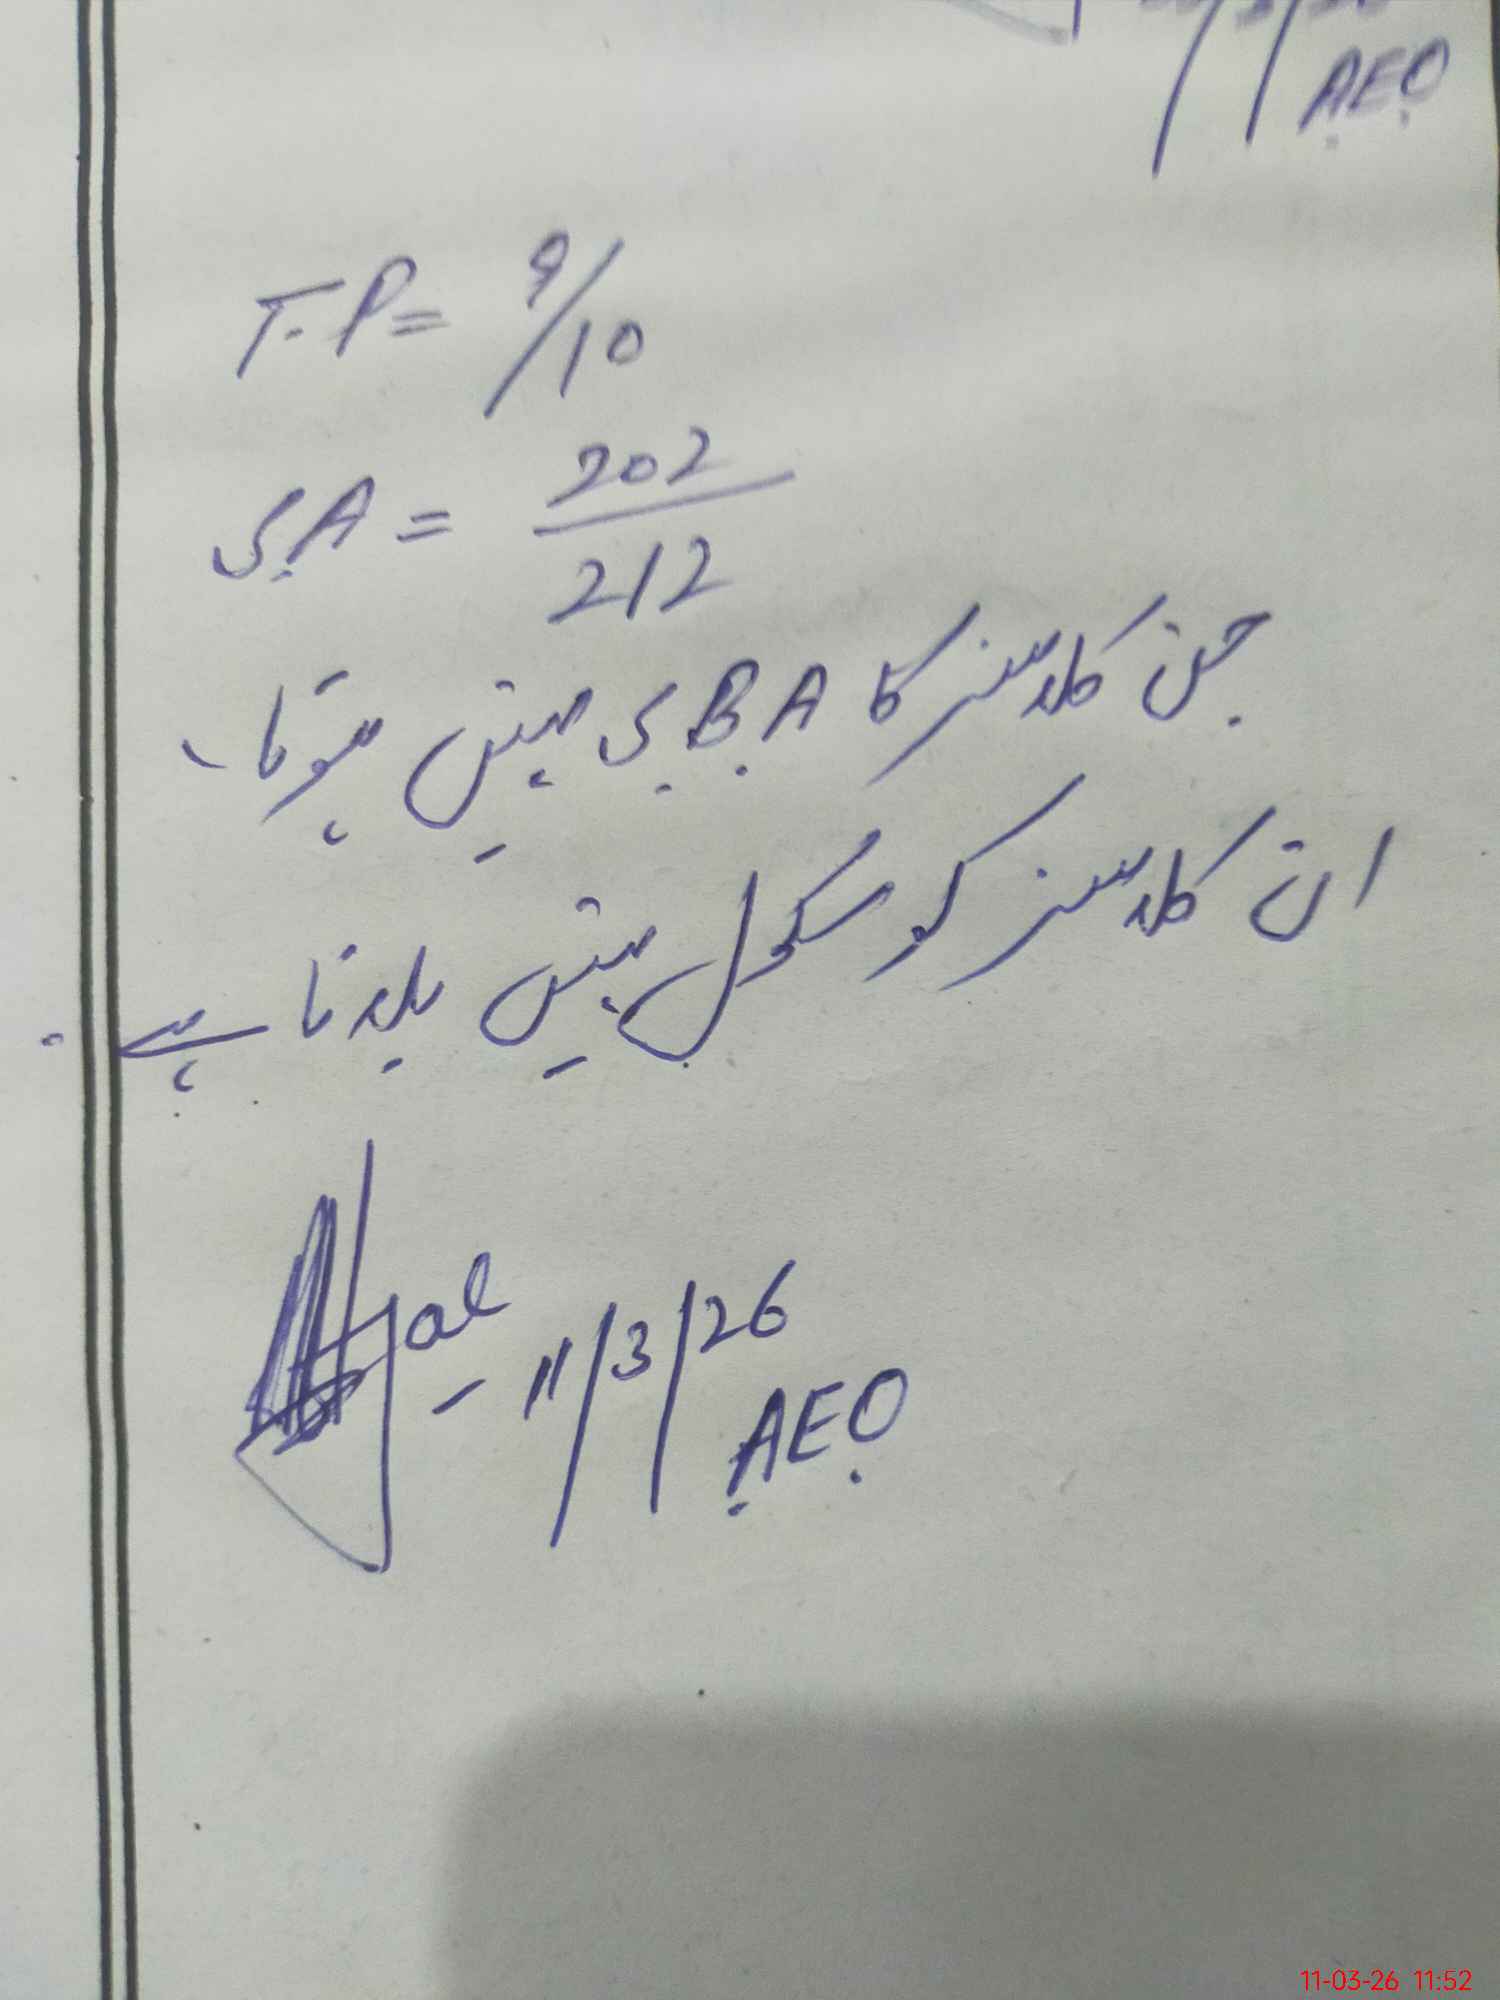 AEO
T.P = 9/10
S.A = 202/212
جن کلاسز کا S.B.A نہیں ہوتا،
ان کلاسز کو سکول نہیں بلانا ہے۔
11/3/26
AEO
11-03-26 11:52